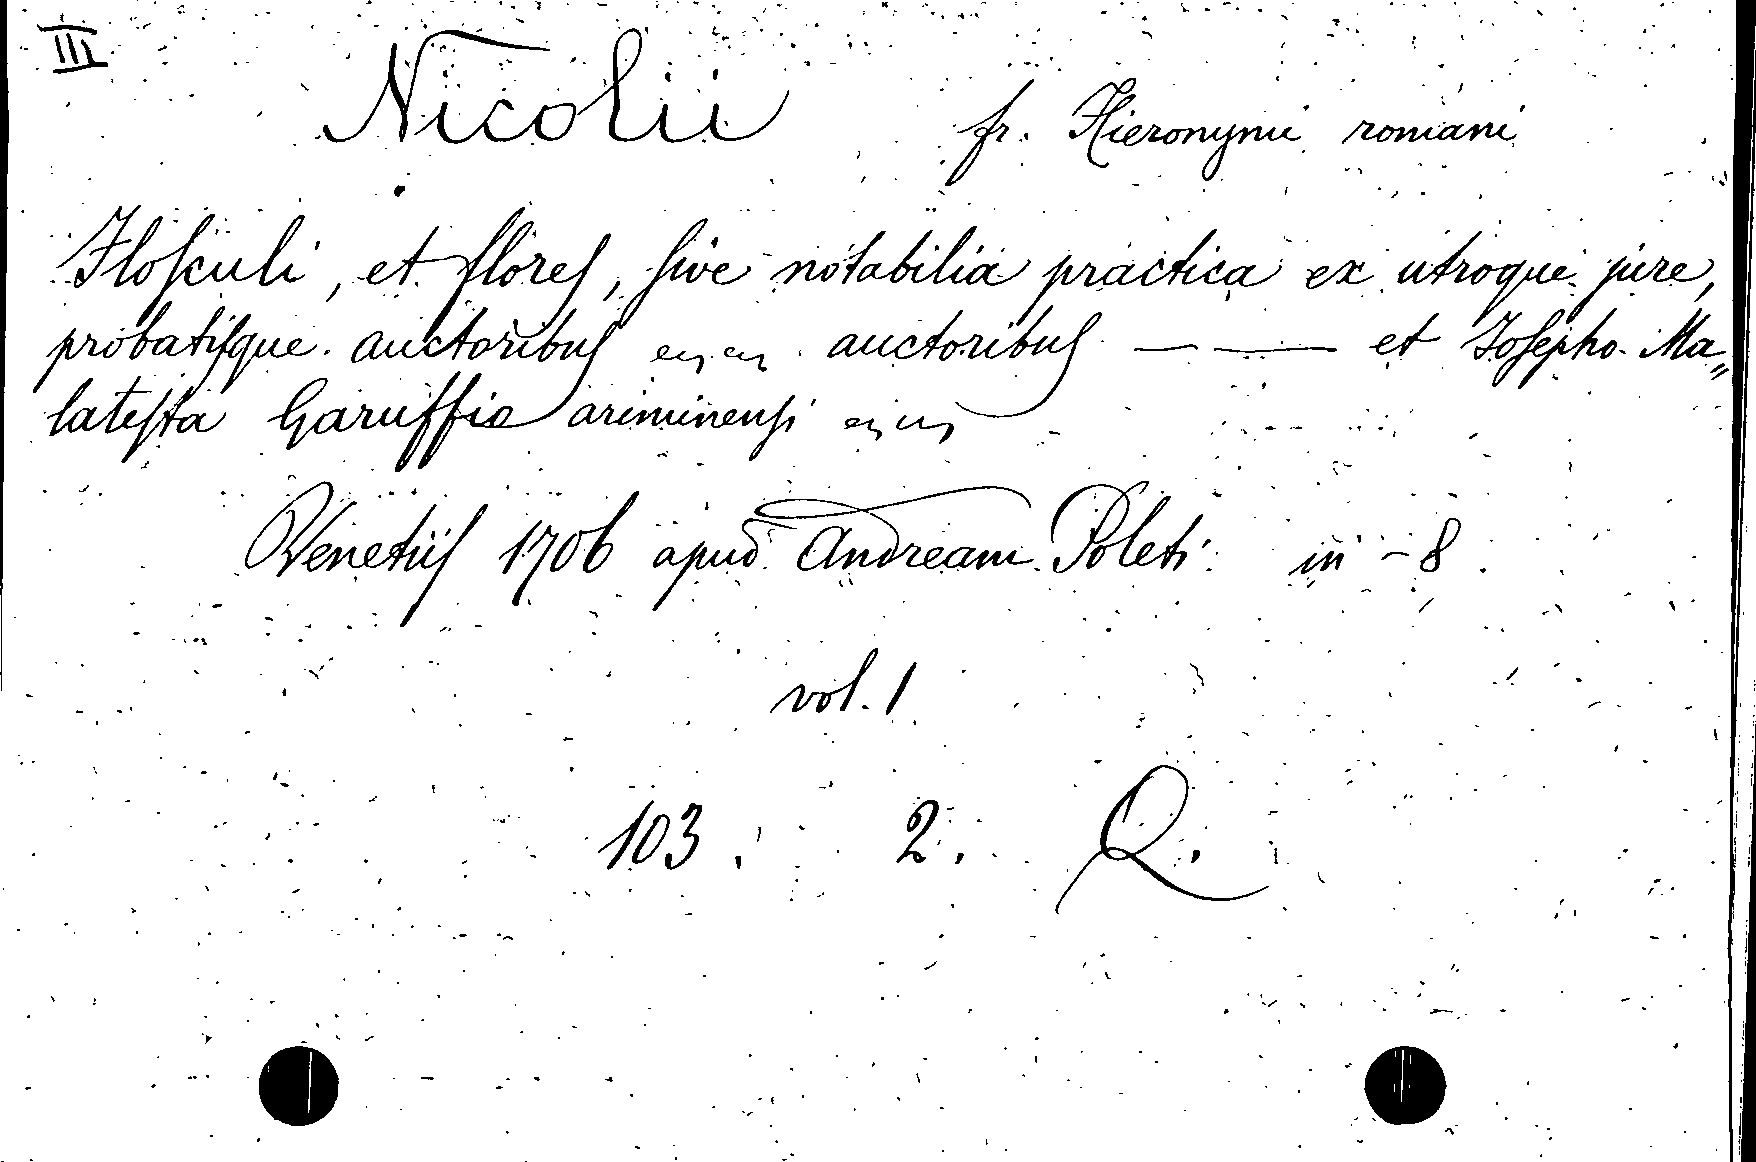 III
Nicolii fr. Hieronymi romani
Flosculi, et flores, sive notabilia practica ex utroque jure,
probatisque auctoribus auctoribus —— et Josepho Ma„
latesta Garuffio ariminensi
Venetiis 1706 apud Andream Poleti in-8.
vol. 1
103. 2. Q.